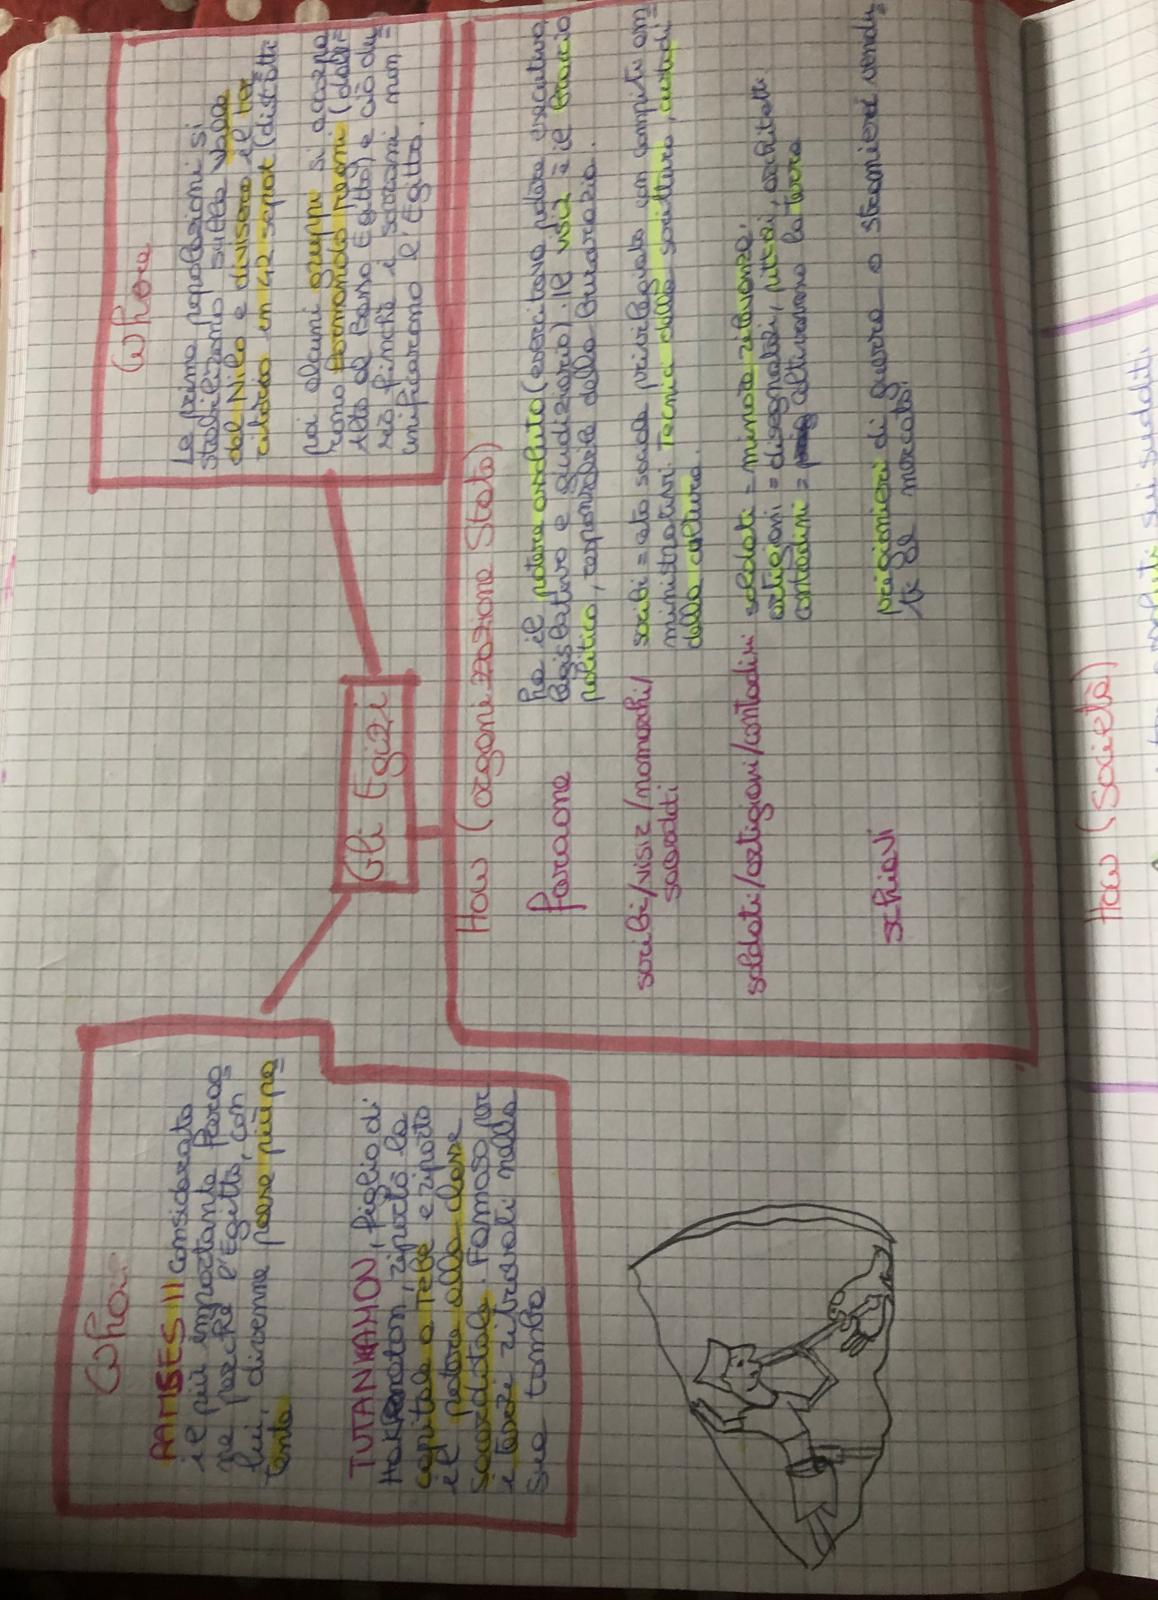 Gli Egizi
Who?
RAMSES II considerato
il più importante farao
ne perché l'Egitto, con
lui, divenne paese più po
tente
TUTANKAMON, figlio di
riportò la
capitale a Tebe e riportò
il potere alla classe
sacerdotale. Famoso per
i tesori ritrovati nella
sua tomba
Where
Le prime popolazioni si
stabilirono sulla valle
del Nilo e divisero il ter
ritorio in 42 sepat (distretti
poi alcuni gruppi si accorpa
rono formando regni (dell'=
alto al Basso Egitto) e ciò du
rò finché i sovrani non
unificarono l'Egitto.
How (organizzazione Stato)
faraone
ha il potere assoluto (esercitava potere esecutivo
legislativo e giudiziario). Il visir è il braccio
politico, responsabile della burocrazia.
scribi/visir/nomarchi/
sacerdoti
scribi = ceto sociale privilegiato con compiti am=
ministrativi. Tecnici della scrittura, custodi
della cultura.
soldati/artigiani/contadini
soldati = minore rilevanza.
artigiani = disegnatori, pittori, architetti.
contadini = coltivavano la terra
schiavi
prigionieri di guerra o stranieri vendu=
ti al mercato.
How (società)
sui sudditi